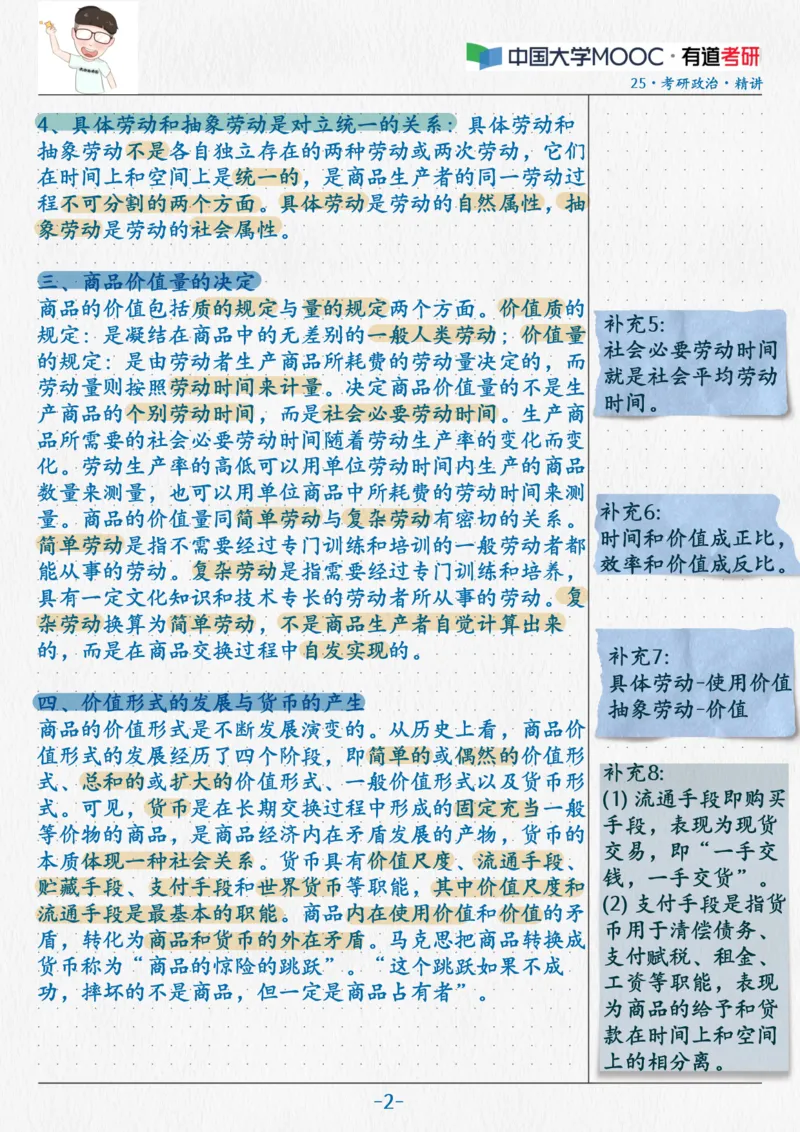 中国大学MOOC·有道考研
25·考研政治·精讲
4、具体劳动和抽象劳动是对立统一的关系：具体劳动和
抽象劳动不是各自独立存在的两种劳动或两次劳动，它们
在时间上和空间上是统一的，是商品生产者的同一劳动过
程不可分割的两个方面。具体劳动是劳动的自然属性，抽
象劳动是劳动的社会属性。
三、商品价值量的决定
商品的价值包括质的规定与量的规定两个方面。价值质的
规定：是凝结在商品中的无差别的一般人类劳动；价值量
的规定：是由劳动者生产商品所耗费的劳动量决定的，而
劳动量则按照劳动时间来计量。决定商品价值量的不是生
产商品的个别劳动时间，而是社会必要劳动时间。生产商
品所需要的社会必要劳动时间随着劳动生产率的变化而变
化。劳动生产率的高低可以用单位劳动时间内生产的商品
数量来测量，也可以用单位商品中所耗费的劳动时间来测
量。商品的价值量同简单劳动与复杂劳动有密切的关系。
简单劳动是指不需要经过专门训练和培训的一般劳动者都
能从事的劳动。复杂劳动是指需要经过专门训练和培养，
具有一定文化知识和技术专长的劳动者所从事的劳动。复
杂劳动换算为简单劳动，不是商品生产者自觉计算出来
的，而是在商品交换过程中自发实现的。
四、价值形式的发展与货币的产生
商品的价值形式是不断发展演变的。从历史上看，商品价
值形式的发展经历了四个阶段，即简单的或偶然的价值形
式、总和的或扩大的价值形式、一般价值形式以及货币形
式。可见，货币是在长期交换过程中形成的固定充当一般
等价物的商品，是商品经济内在矛盾发展的产物，货币的
本质体现一种社会关系。货币具有价值尺度、流通手段、
贮藏手段、支付手段和世界货币等职能，其中价值尺度和
流通手段是最基本的职能。商品内在使用价值和价值的矛
盾，转化为商品和货币的外在矛盾。马克思把商品转换成
货币称为“商品的惊险的跳跃”。“这个跳跃如果不成
功，摔坏的不是商品，但一定是商品占有者”。
补充5:
社会必要劳动时间
就是社会平均劳动
时间。
补充6:
时间和价值成正比，
效率和价值成反比。
补充7:
具体劳动-使用价值
抽象劳动-价值
补充8:
(1) 流通手段即购买
手段，表现为现货
交易，即“一手交
钱，一手交货”。
(2) 支付手段是指货
币用于清偿债务、
支付赋税、租金、
工资等职能，表现
为商品的给予和贷
款在时间上和空间
上的相分离。
-2-